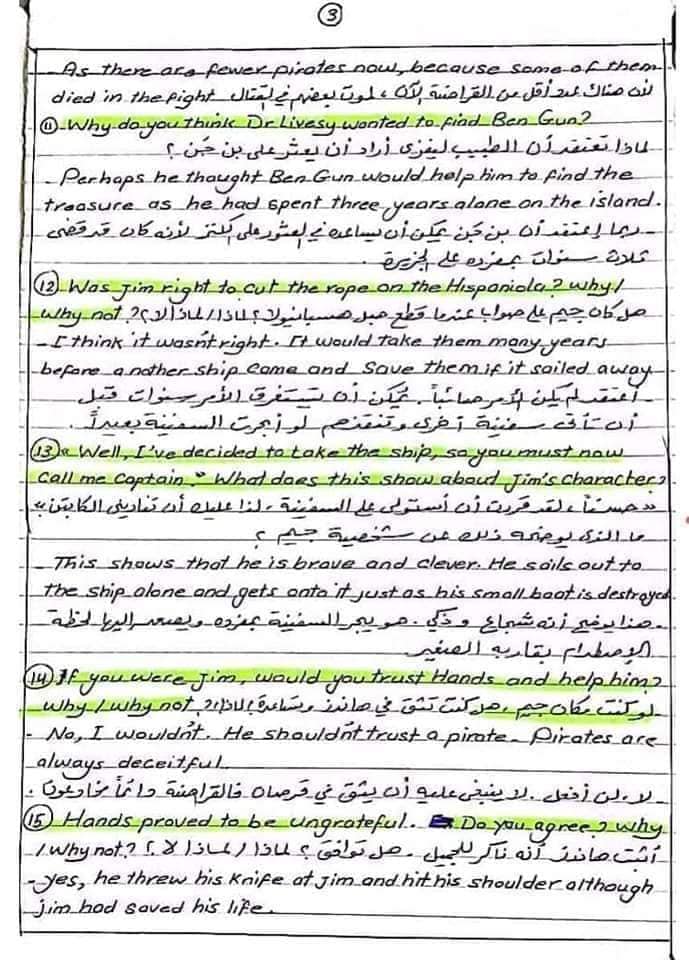 3
- As there are fewer pirates now, because some of them
died in the fight لأن هناك عدد أقل من القراصنة الآن، لموت بعضهم في القتال
11 Why do you think Dr Livesy wanted to find Ben Gun?
لماذا تعتقد أن الطبيب ليفزى أراد أن يعثر على بن جن ؟
- Perhaps he thought Ben Gun would help him to find the
treasure as he had spent three years alone on the island.
- ربما إعتقد أن بن جن يمكن أن يساعده في العثور على الكنز لأنه كان قد قضى
ثلاث سنوات بمفرده على الجزيرة.
12 Was Jim right to cut the rope on the Hispaniola? Why/
Why not? هل كان جيم على صواب عندما قطع حبل هسبانيولا؟ لماذا/ لماذا لا؟
- I think it wasn't right. It would take them many years
before another ship came and save them if it sailed away
- أعتقد لم يكن الأمر صائباً. يُمكن أن تستغرق الأمر سنوات قبل
أن تأتى سفينة أخرى وتنقذهم لو أبحرت السفينة بعيداً.
13 "Well, I've decided to take the ship, so you must now
Call me Captain" What does this show about Jim's character?
"حسناً، لقد قررت أن أستولى على السفينة، لذا عليك أن تنادينى الكابتن"
ما الذى يوضحه ذلك عن شخصية جيم ؟
- This shows that he is brave and clever. He sails out to
the ship alone and gets onto it just as his small boat is destroyed
- هذا يوضح أنه شجاع وذكي. هو يبحر السفينة بمفرده ويصعد إليها لحظة
الإصطدام بقاربه الصغير.
14 If you were Jim, would you trust Hands and help him?
Why/why not? لو كنت مكان جيم، هل كنت تثق في هاندز وتساعده؟ لماذا؟
- No, I wouldn't. He shouldn't trust a pirate. Pirates are
always deceitful.
- لا، لن أفعل. لا ينبغى عليه أن يثق في قرصان فالقراصنة دائماً مخادعون.
15 Hands proved to be ungrateful. Do you agree? why
/ Why not? أثبت هاندز أنه ناكر للجميل. هل توافق؟ لماذا/ لماذا لا؟
- yes, he threw his knife at Jim and hit his shoulder although
Jim had saved his life.